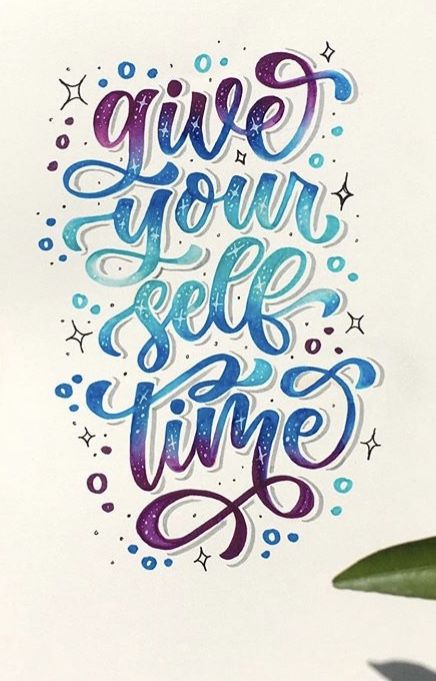 give
your
self
time